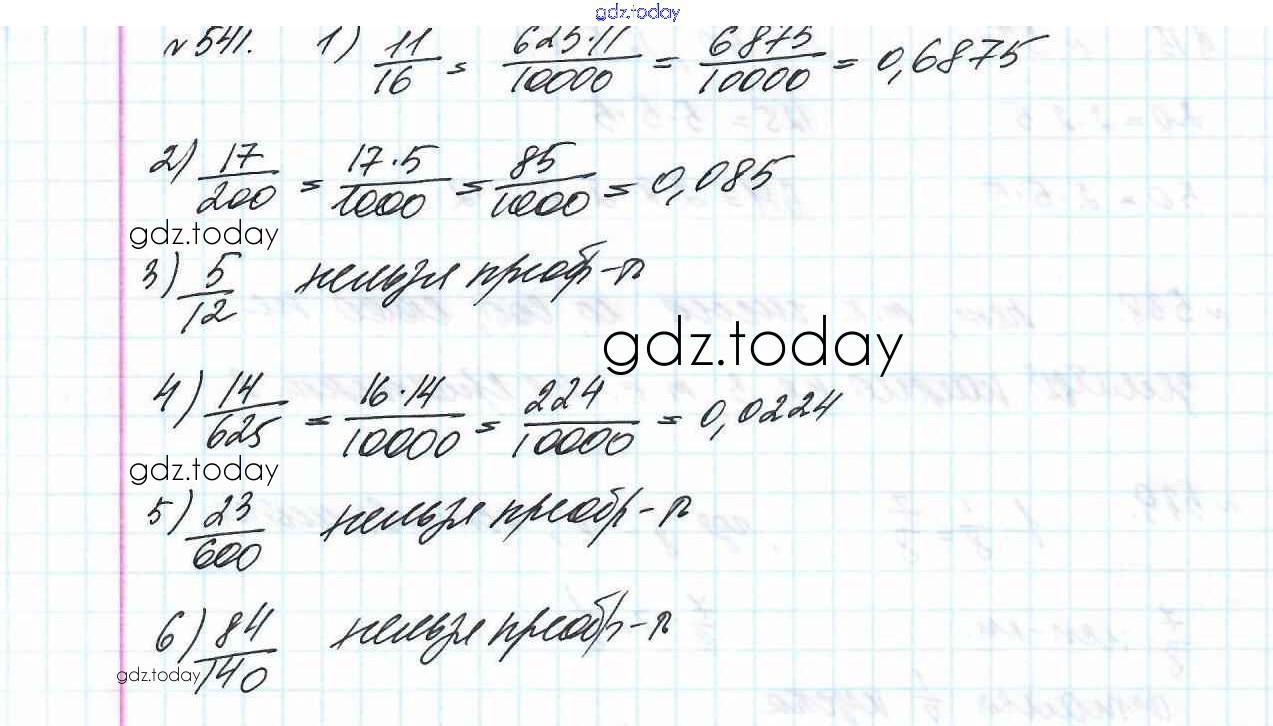 gdz.today
№541. 1) 11/16 = 625·11/10000 = 6875/10000 = 0,6875
2) 17/200 = 17·5/1000 = 85/1000 = 0,085
gdz.today
3) 5/12 нельзя преобр-ть
gdz.today
4) 14/625 = 16·14/10000 = 224/10000 = 0,0224
gdz.today
5) 23/600 нельзя преобр-ть
6) 84/140 нельзя преобр-ть
gdz.today